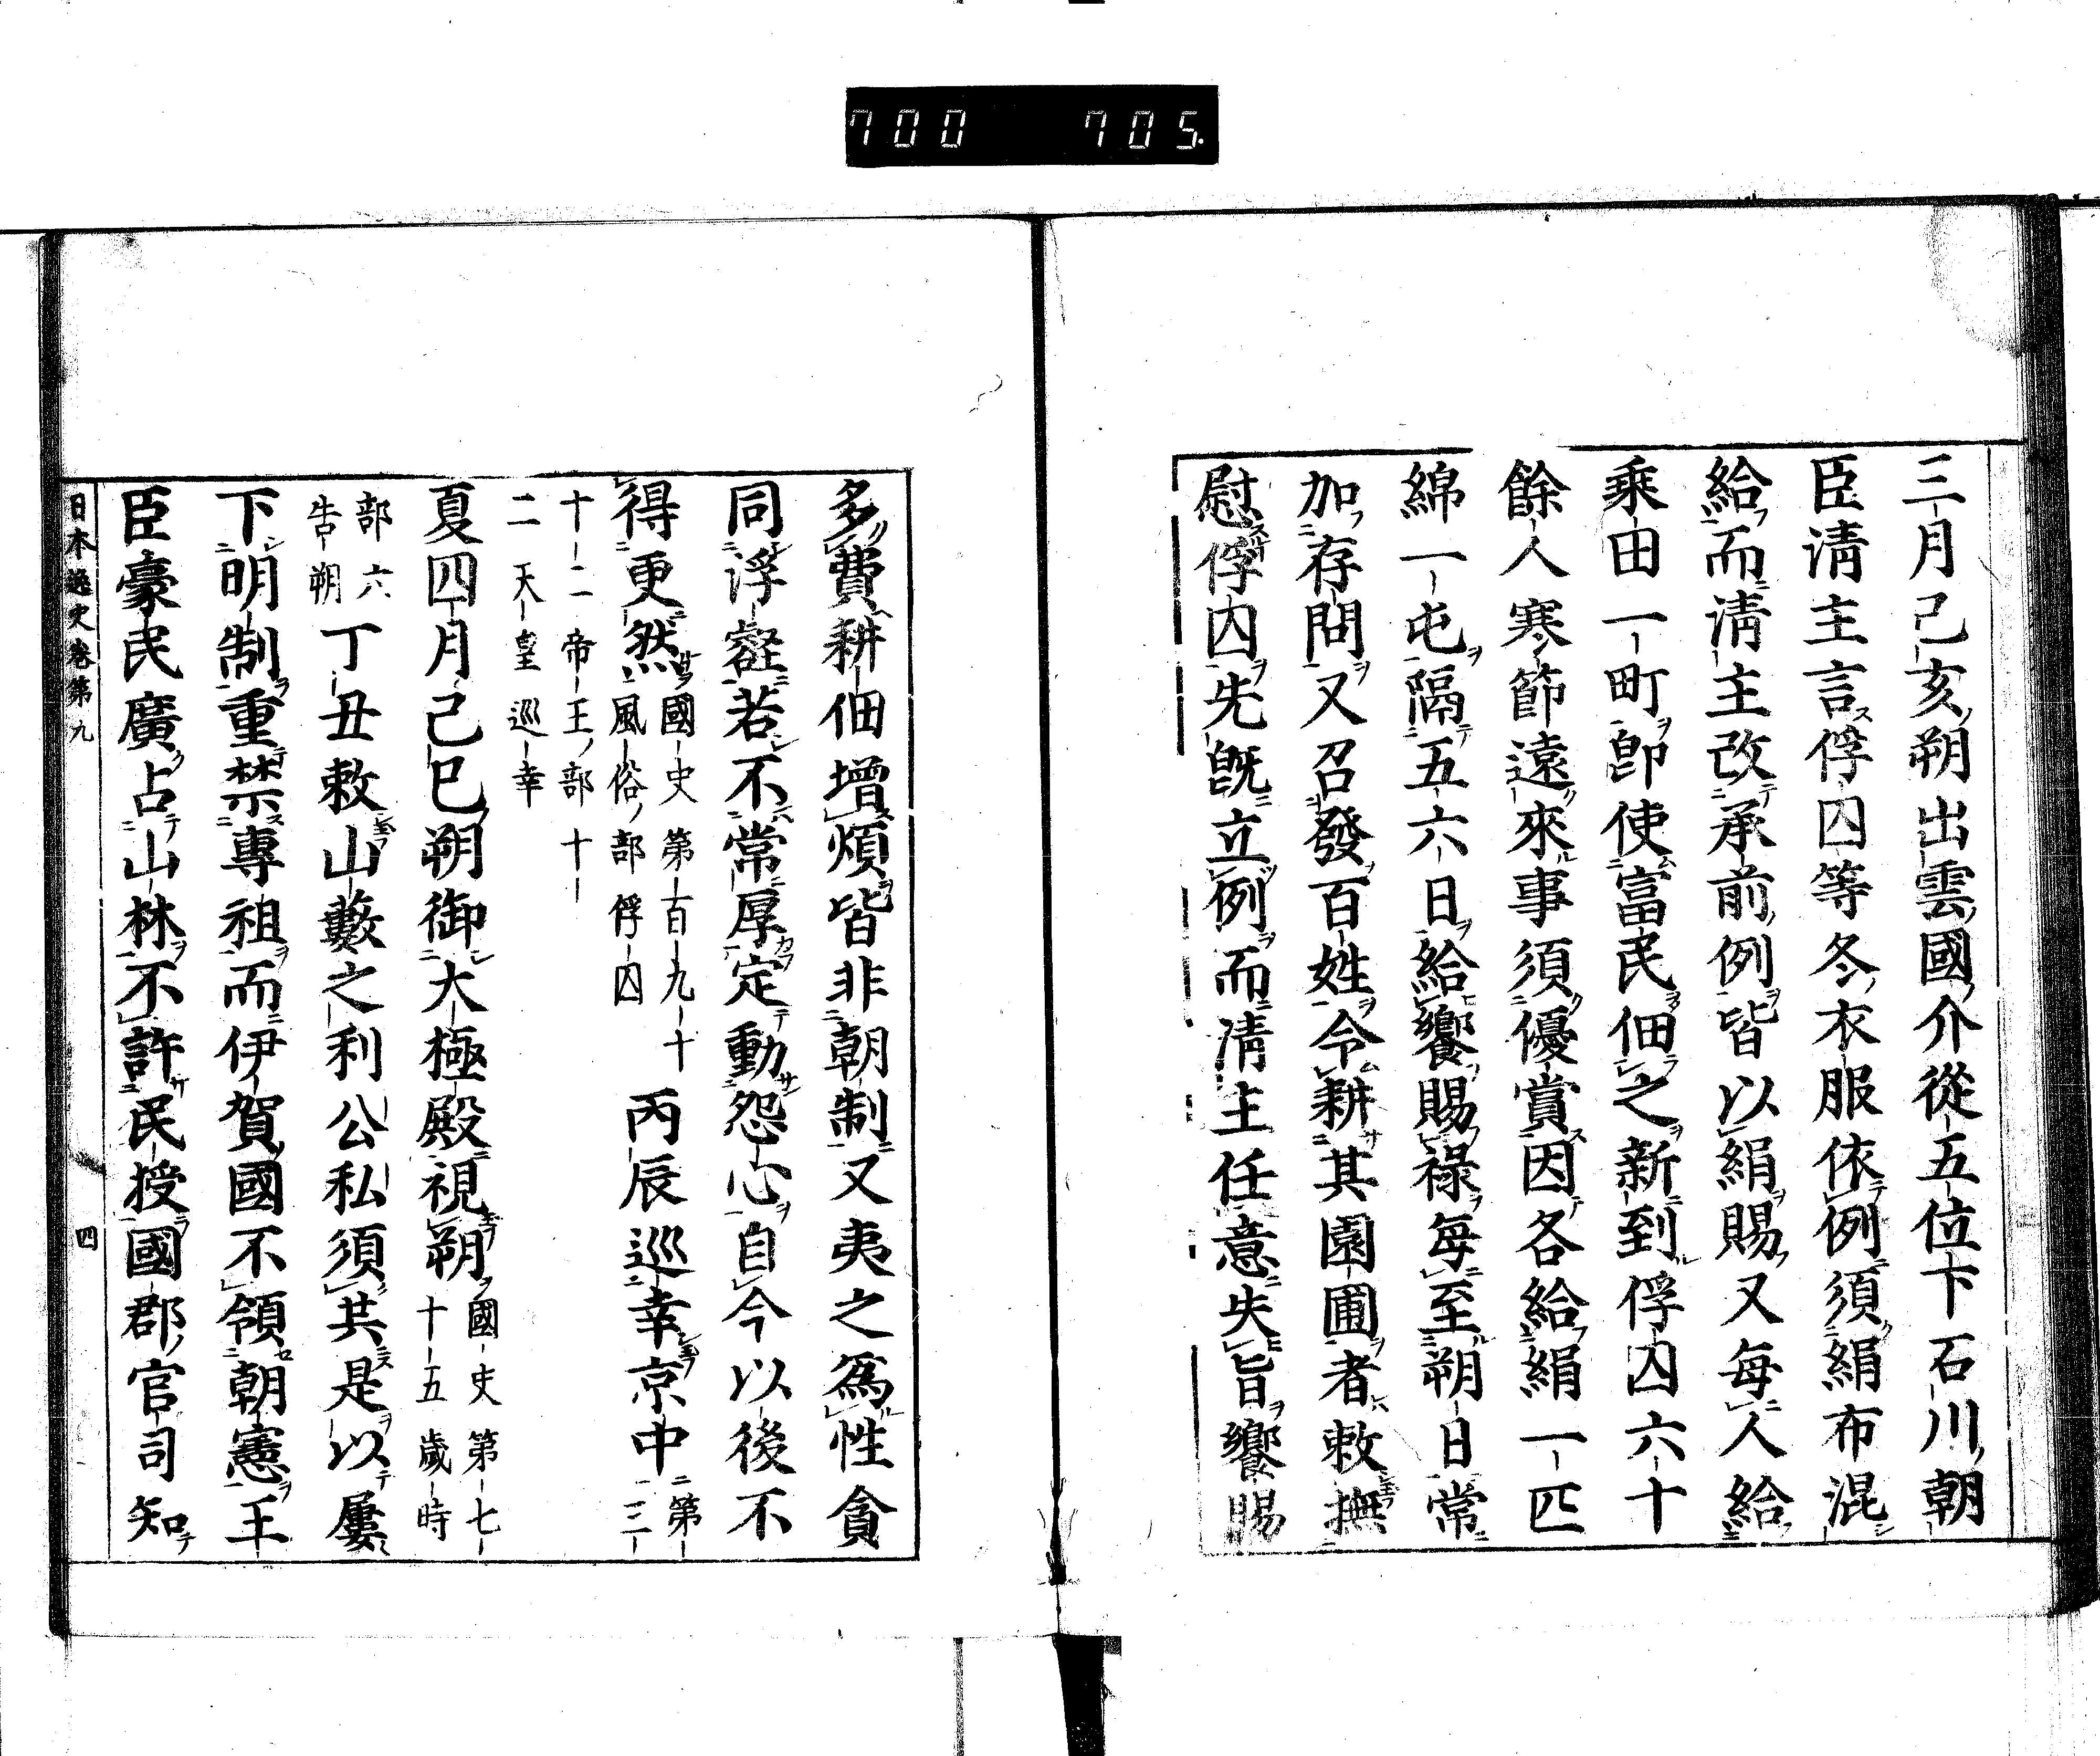 700 705
三月己亥朔出雲國介從五位下石川朝
臣清主言俘囚等冬衣服依例須絹布混
給而清主改承前例皆以絹賜又每人給
乘田一町卽使富民佃之新到俘囚六十
餘人寒節遠來事須優賞因各給絹一匹
綿一屯隔五六日給饗賜祿每至朔日常
加存問又召發百姓令耕其園圃者敕撫
慰俘囚先旣立例而清主任意失旨饗賜
多費耕佃增煩皆非朝制又夷之爲性貪
同浮壑若不常厚定動怨心自今以後不
得更然國史第百九十風俗部俘囚 丙辰巡幸京中第三
十二帝王部十二天皇巡幸
夏四月己巳朔御大極殿視朔國史第七十五歲時
部六告朔丁丑敕山藪之利公私須共是以屢
下明制重禁專祖而伊賀國不領朝憲王
臣豪民廣占山林不許民授國郡官司知
日本逸史卷第九 四